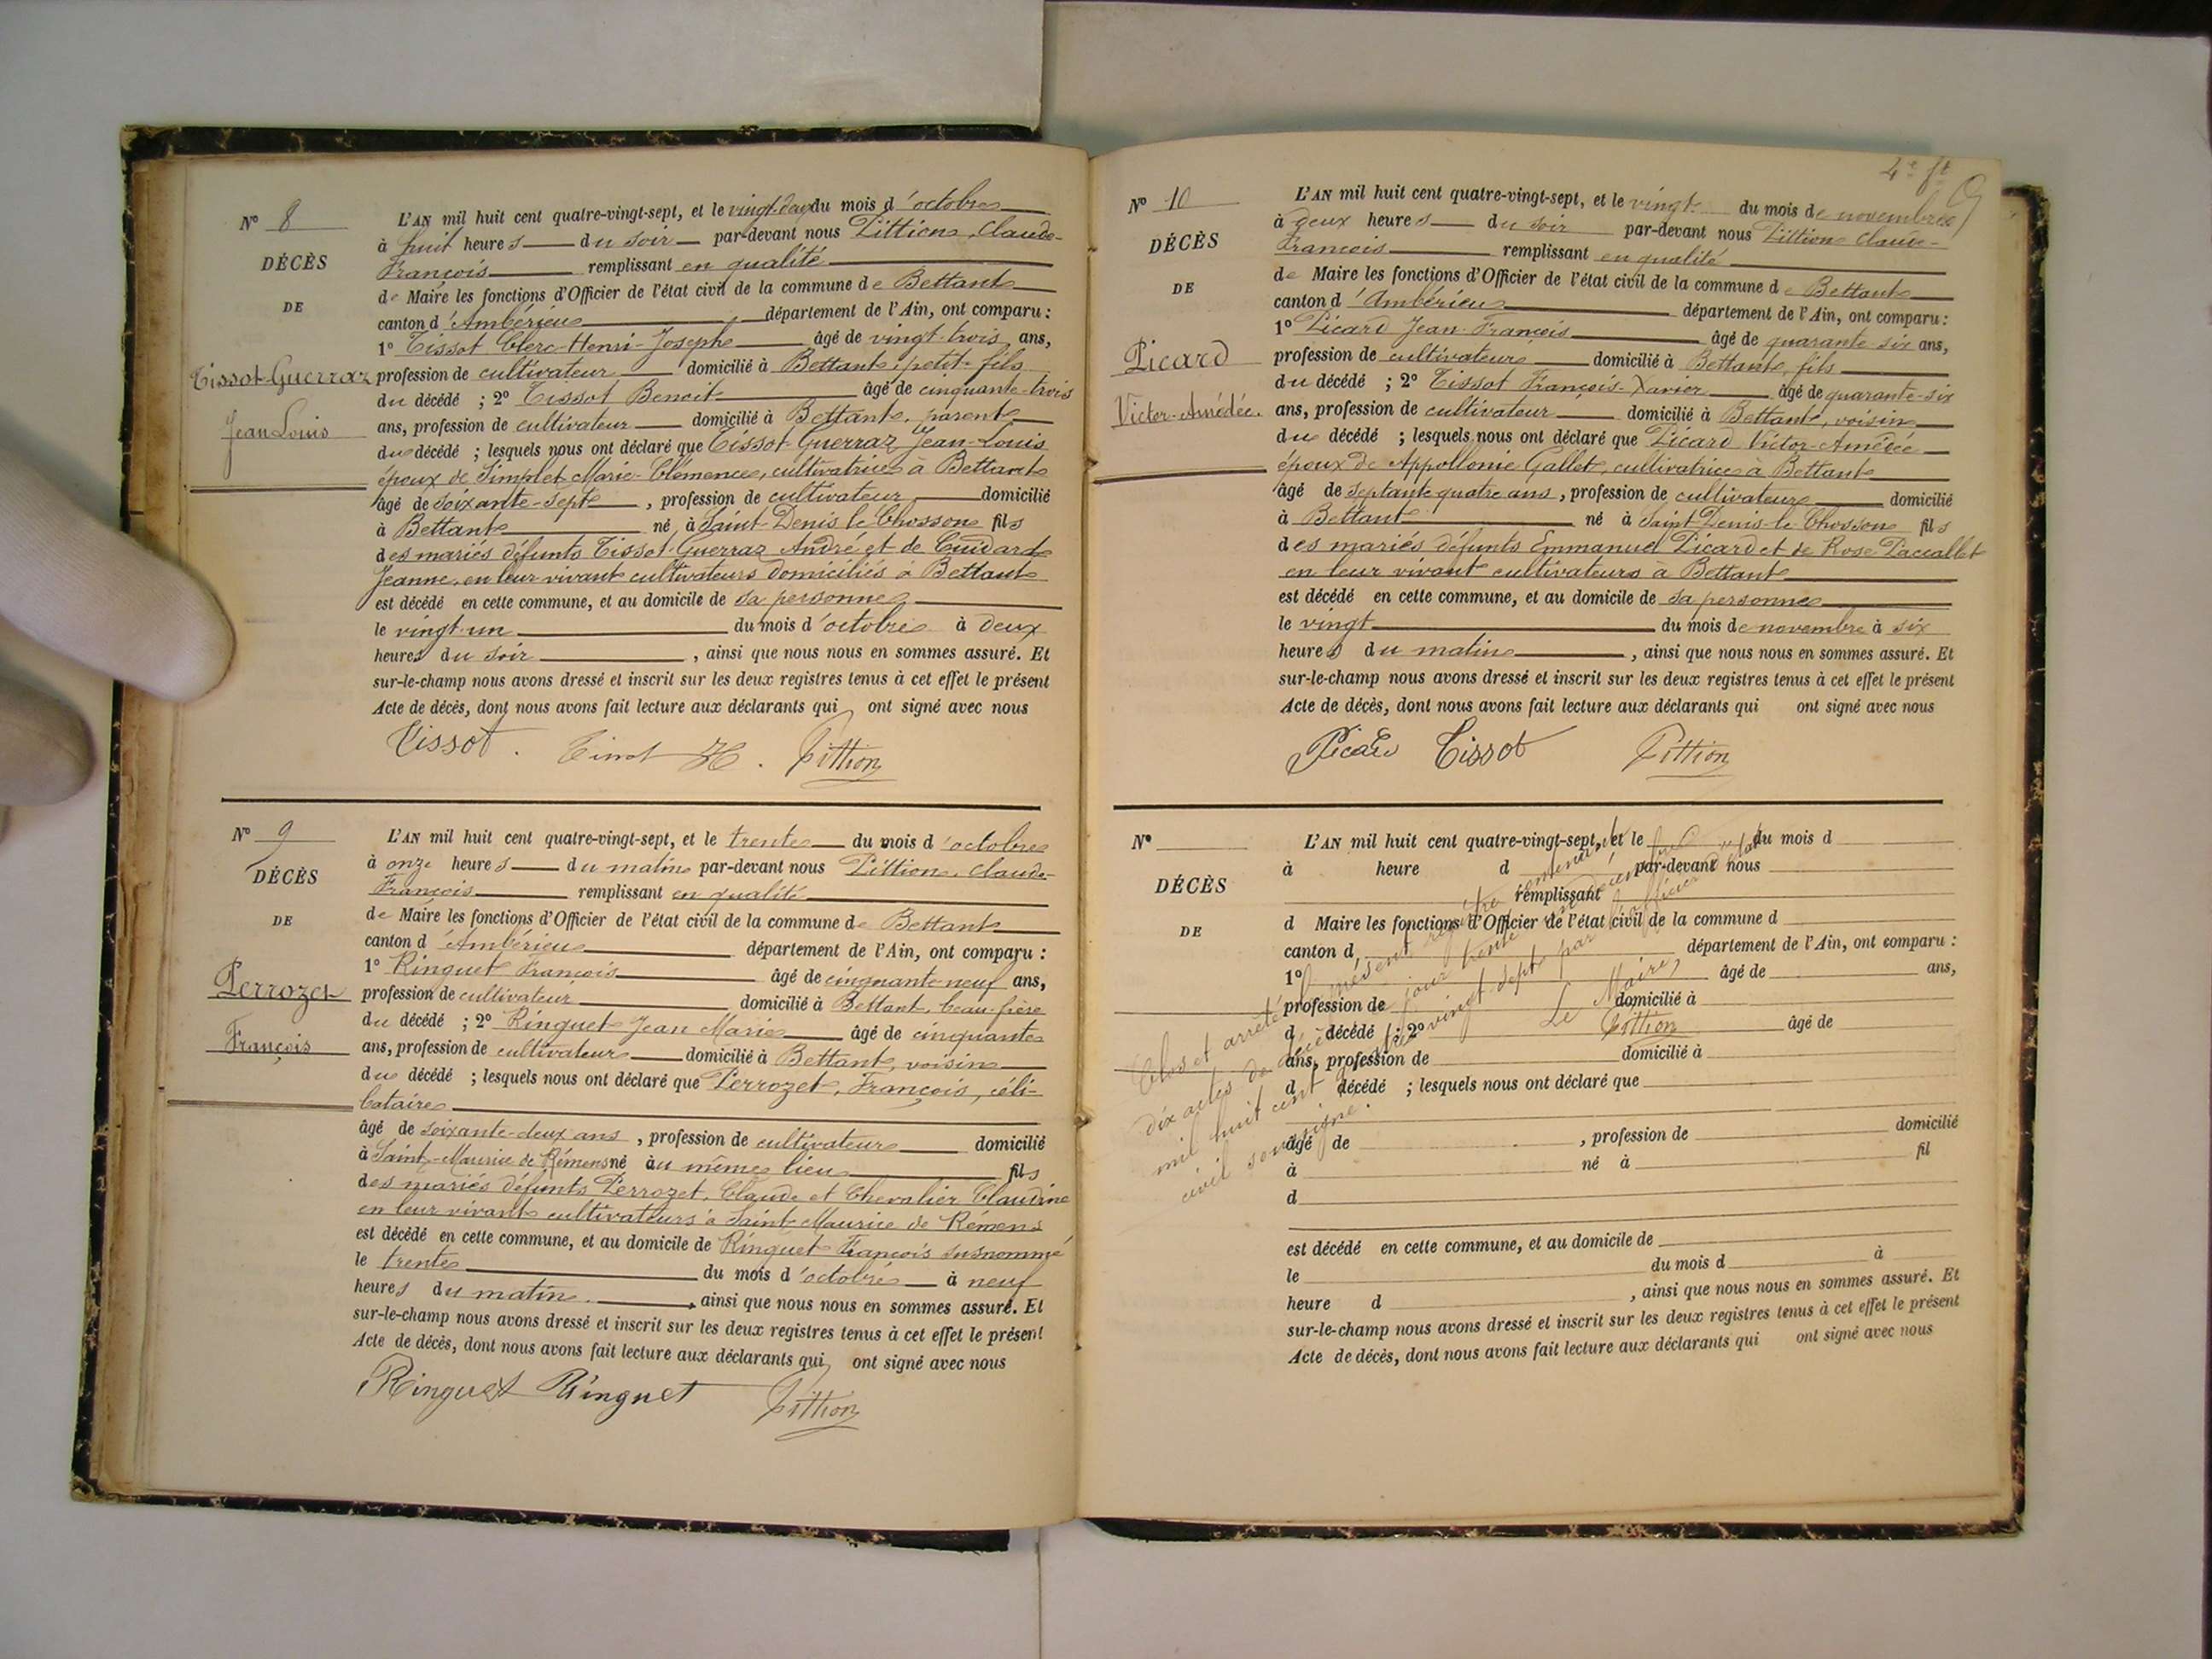 N° 8
DÉCÈS
DE
Tissot-Guerraz
Jean Louis
L'AN mil huit cent quatre-vingt-sept, et le vingt-deux du mois d'octobre
à huit heures du soir par-devant nous Pittion, Claude-
François remplissant en qualité
de Maire les fonctions d'Officier de l'état civil de la commune de Bettant
canton d'Ambérieu département de l'Ain, ont comparu :
1° Tissot Clerc-Henri-Joseph âgé de vingt-trois ans,
profession de cultivateur domicilié à Bettant, petit-fils
du décédé ; 2° Tissot Benoit âgé de cinquante-trois
ans, profession de cultivateur domicilié à Bettant, parent
du décédé ; lesquels nous ont déclaré que Tissot-Guerraz Jean-Louis
époux de Simplet Marie-Clémence, cultivatrice à Bettant
âgé de soixante-sept , profession de cultivateur domicilié
à Bettant né à Saint-Denis le Chosson fils
des mariés défunts Tissot-Guerraz André et de Cuidard
Jeanne, en leur vivant cultivateurs domiciliés à Bettant
est décédé en cette commune, et au domicile de sa personne
le vingt-un du mois d'octobre à deux
heures du soir , ainsi que nous nous en sommes assuré. Et
sur-le-champ nous avons dressé et inscrit sur les deux registres tenus à cet effet le présent
Acte de décès, dont nous avons fait lecture aux déclarants qui ont signé avec nous
Tissot. Tissot H. Pittion
N° 9
DÉCÈS
DE
Perrozet
François
L'AN mil huit cent quatre-vingt-sept, et le trente du mois d'octobre
à onze heures du matin par-devant nous Pittion, Claude-
François remplissant en qualité
de Maire les fonctions d'Officier de l'état civil de la commune de Bettant
canton d'Ambérieu département de l'Ain, ont comparu :
1° Ringuet François âgé de cinquante neuf ans,
profession de cultivateur domicilié à Bettant, beau-frère
du décédé ; 2° Ringuet Jean Marie âgé de cinquante
ans, profession de cultivateur domicilié à Bettant, voisin
du décédé ; lesquels nous ont déclaré que Perrozet, François, céli-
bataire
âgé de soixante-deux ans , profession de cultivateur domicilié
à Saint-Maurice de Rémens né au même lieu fils
des mariés défunts Perrozet, Claude et Chevalier Claudine
en leur vivant cultivateurs à Saint Maurice de Rémens
est décédé en cette commune, et au domicile de Ringuet François susnommé
le trente du mois d'octobre à neuf
heures du matin , ainsi que nous nous en sommes assuré. Et
sur-le-champ nous avons dressé et inscrit sur les deux registres tenus à cet effet le présent
Acte de décès, dont nous avons fait lecture aux déclarants qui ont signé avec nous
Ringuet Ringuet Pittion
4e ft
N° 10
DÉCÈS
DE
Picard
Victor-Amédée.
L'AN mil huit cent quatre-vingt-sept, et le vingt du mois de novembre
à deux heures du soir par-devant nous Pittion Claude-
François remplissant en qualité
de Maire les fonctions d'Officier de l'état civil de la commune de Bettant
canton d'Ambérieu département de l'Ain, ont comparu :
1° Picard Jean-François âgé de quarante six ans,
profession de cultivateur domicilié à Bettant, fils
du décédé ; 2° Tissot François-Xavier âgé de quarante-six
ans, profession de cultivateur domicilié à Bettant, voisin
du décédé ; lesquels nous ont déclaré que Picard Victor-Amédée
époux de Appollonie Gallet, cultivatrice à Bettant
âgé de septante quatre ans , profession de cultivateur domicilié
à Bettant né à Saint Denis-le-Chosson fils
des mariés défunts Emmanuel Picard et de Rose Paccallet
en leur vivant cultivateurs à Bettant
est décédé en cette commune, et au domicile de sa personne
le vingt du mois de novembre à six
heures du matin , ainsi que nous nous en sommes assuré. Et
sur-le-champ nous avons dressé et inscrit sur les deux registres tenus à cet effet le présent
Acte de décès, dont nous avons fait lecture aux déclarants qui ont signé avec nous
Picard Tissot Pittion
N°
DÉCÈS
DE
L'AN mil huit cent quatre-vingt-sept, et le du mois d
à heure d par-devant nous
remplissant
d Maire les fonctions d'Officier de l'état civil de la commune d
canton d département de l'Ain, ont comparu :
1° âgé de ans,
profession de domicilié à
d décédé ; 2° âgé de
ans, profession de domicilié à
d décédé ; lesquels nous ont déclaré que
âgé de , profession de domicilié
à né à fil
d
est décédé en cette commune, et au domicile de
le du mois d à
heure d , ainsi que nous nous en sommes assuré. Et
sur-le-champ nous avons dressé et inscrit sur les deux registres tenus à cet effet le présent
Acte de décès, dont nous avons fait lecture aux déclarants qui ont signé avec nous
Clos et arrêté le présent registre contenant
dix actes de décès jour trente un décembre
mil huit cent quatre vingt sept par l'officier d'état
civil soussigné.
Le Maire,
Pittion